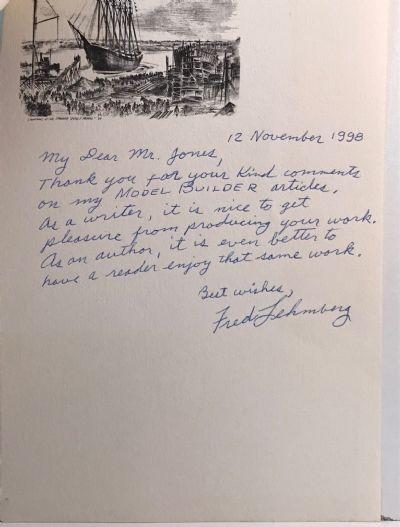 12 November 1998
My Dear Mr. Jones,
Thank you for your kind comments
on my MODEL BUILDER articles.
As a writer, it is nice to get
pleasure from producing your work.
As an author, it is even better to
have a reader enjoy that same work.
Best wishes,
Fred Lehmberg